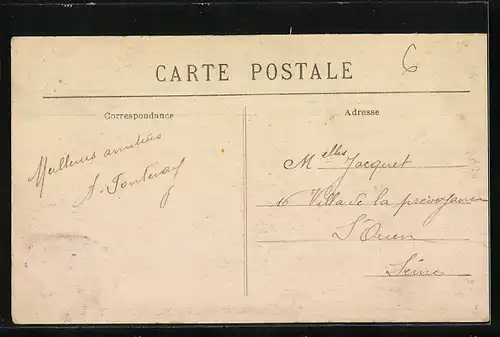 6
CARTE POSTALE
Correspondance
Adresse
Meilleures amitiés
A. Fontenay
Melles Jacquet
16 Villa de la prévoyance
St Ouen
Seine